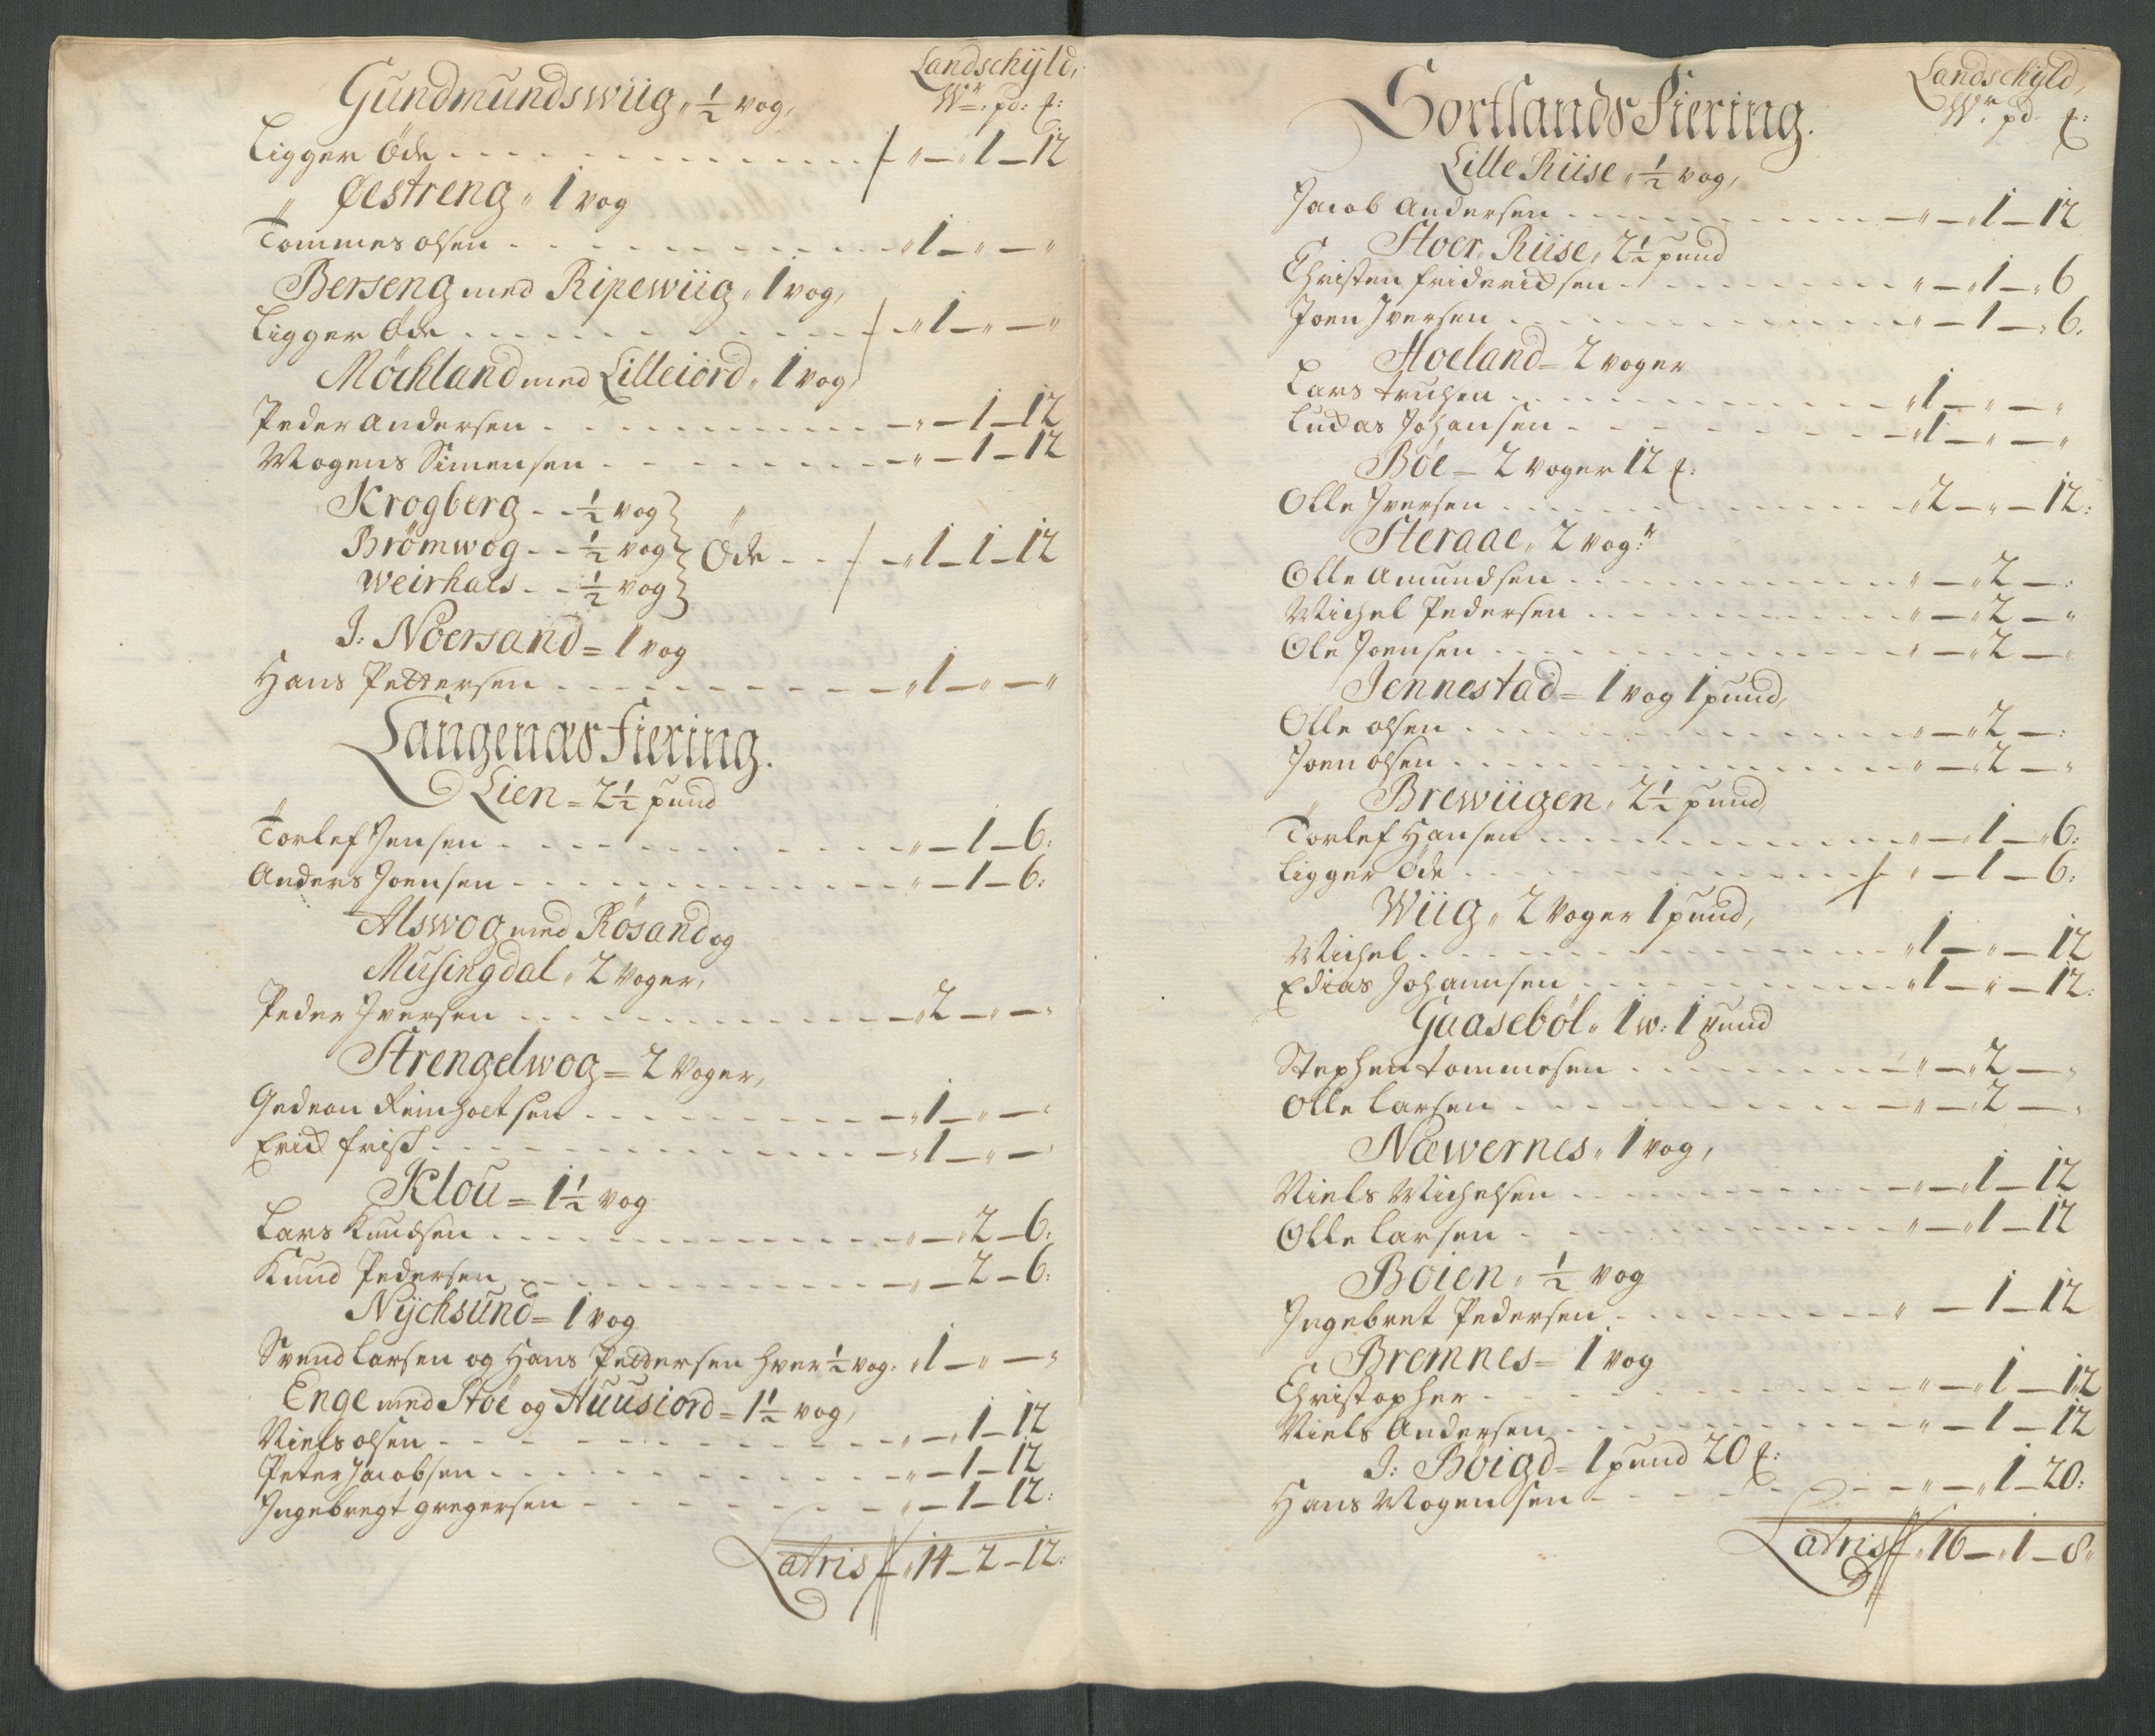 Landschÿld,
Wr. pd: ₰:
Gundmundswiig, ½ vog,
Ligger Öde . . . . . . „ — 1 — 12
Øestreng, 1 vog
Tommes olsen . . . . . . „ 1 — „ — „
Berseng med Ripewiig, 1 vog,
Ligger Öde . . . . . . „ 1 — „ — „
Möchland med Lilleiord, 1 vog,
Peder Andersen . . . . . . „ — 1 — 12
Mogens Simensen . . . . . . „ — 1 — 12
Krogberg - - ½ vog }
Brömwog - - ½ vog } Öde . . . „ 1 — 1 — 12
Weirhals - - ½ vog }
I: Noersand = 1 vog
Hans Pettersen . . . . . . „ 1 — „ — „
Langenæs Fiering.
Lien = 2½ pund
Torlef Jensen . . . . . . „ — 1 — 6:
Anders Joensen . . . . . . „ — 1 — 6:
Alswog med Rösand og
Musingdal, 2 Voger,
Peder Iversen . . . . . . „ 2 — „ — „
Strengelwog = 2 Voger,
Gedeon Reinholtsen . . . . . . „ 1 — „ — „
Erich frisk . . . . . . „ 1 — „ — „
Klou = 1½ vog
Lars Knudsen . . . . . . „ — 2 — 6:
Knud Pedersen . . . . . . „ — 2 — 6:
Nÿchsund = 1 vog
Svend larsen og Hans Pettersen hver ½ vog. „ 1 — „ — „
Enge med Stöe og Huusiord = 1½ vog,
Niels olsen . . . . . . „ — 1 — 12
Peter Jacobsen . . . . . . „ — 1 — 12
Ingebregt gregersen . . . . . . „ — 1 — 12:
Latris „ 14 — 2 — 12:
Landschÿld,
Wr. pd. ₰:
Sortlands Fiering.
Lille Riise, ½ vog,
Jacob Andersen . . . . . . „ — 1 — 12
Stoer Riise, 2½ pund
Christen friderichsen . . . . . . „ — 1 — 6
Joen Iversen . . . . . . „ — 1 — 6.
Hoeland = 2 voger
Lars truhsen . . . . . . „ 1 — „ — „
Ludas Johansen . . . . . . „ 1 — „ — „
Böe — 2 voger 12 ₰:
Olle Iversen . . . . . . „ 2 — „ — 12:
Steraae, 2 vog:r
Olle Amundsen . . . . . . „ — 2 — :
Michel Pedersen . . . . . . „ — 2 — „
Ole Joensen . . . . . . „ — 2 — „
Jennestad = 1 vog 1 pund,
Olle olsen . . . . . . „ — 2 — :
Joen olsen . . . . . . „ — 2 — „
Brewiigen, 2½ pund,
Torlef Hansen . . . . . . „ — 1 — 6:
Ligger Öde . . . . . . „ — 1 — 6:
Wiig, 2 Voger 1 pund,
Michel . . . . . . „ 1 — „ — 12
Edias Johannsen . . . . . . „ 1 — „ — 12:
Gaaseböl, 1 w: 1 pund
Stephen tommesen . . . . . . „ — 2 — „
Olle larsen . . . . . . „ — 2 — „
Næwernes, 1 vog,
Niels Michelsen . . . . . . „ — 1 — 12
Olle larsen . . . . . . „ — 1 — 12
Böien, ½ vog
Ingebret Pedersen . . . . . . „ — 1 — 12
Bremnes = 1 vog
Christopher . . . . . . „ — 1 — 12
Niels Andersen . . . . . . „ — 1 — 12
I: Böigd = 1 pund 20 ₰:
Hans Mogensen . . . . . . „ — 1 — 20:
Latris „ 16 — 1 — 8„